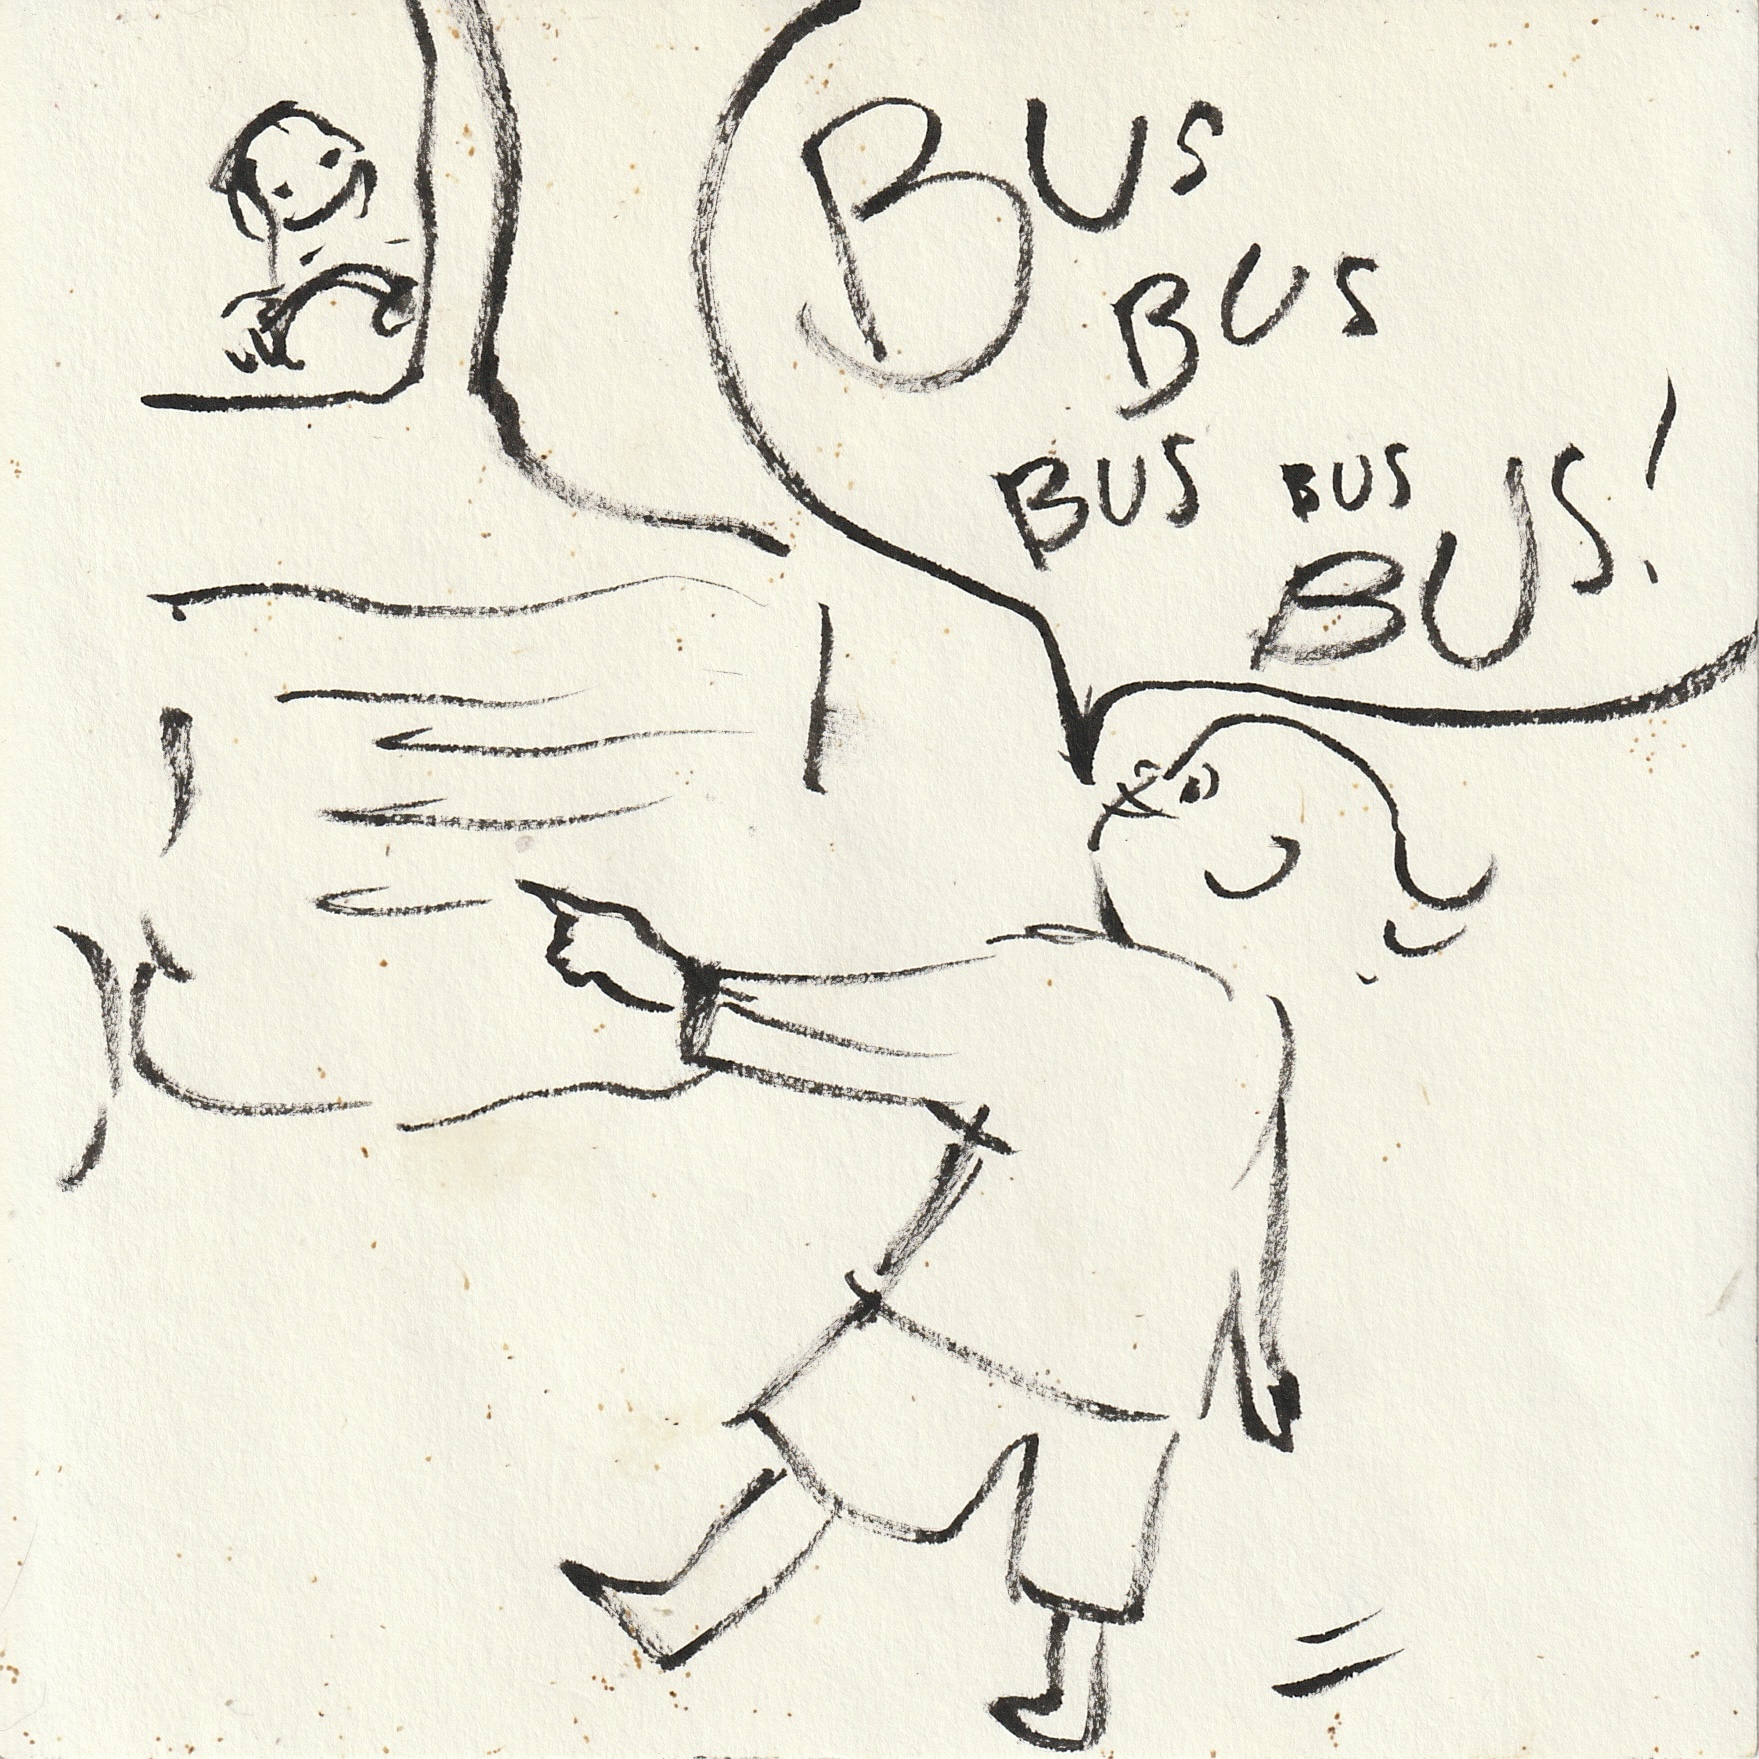 BUS
BUS
BUS BUS
BUS!